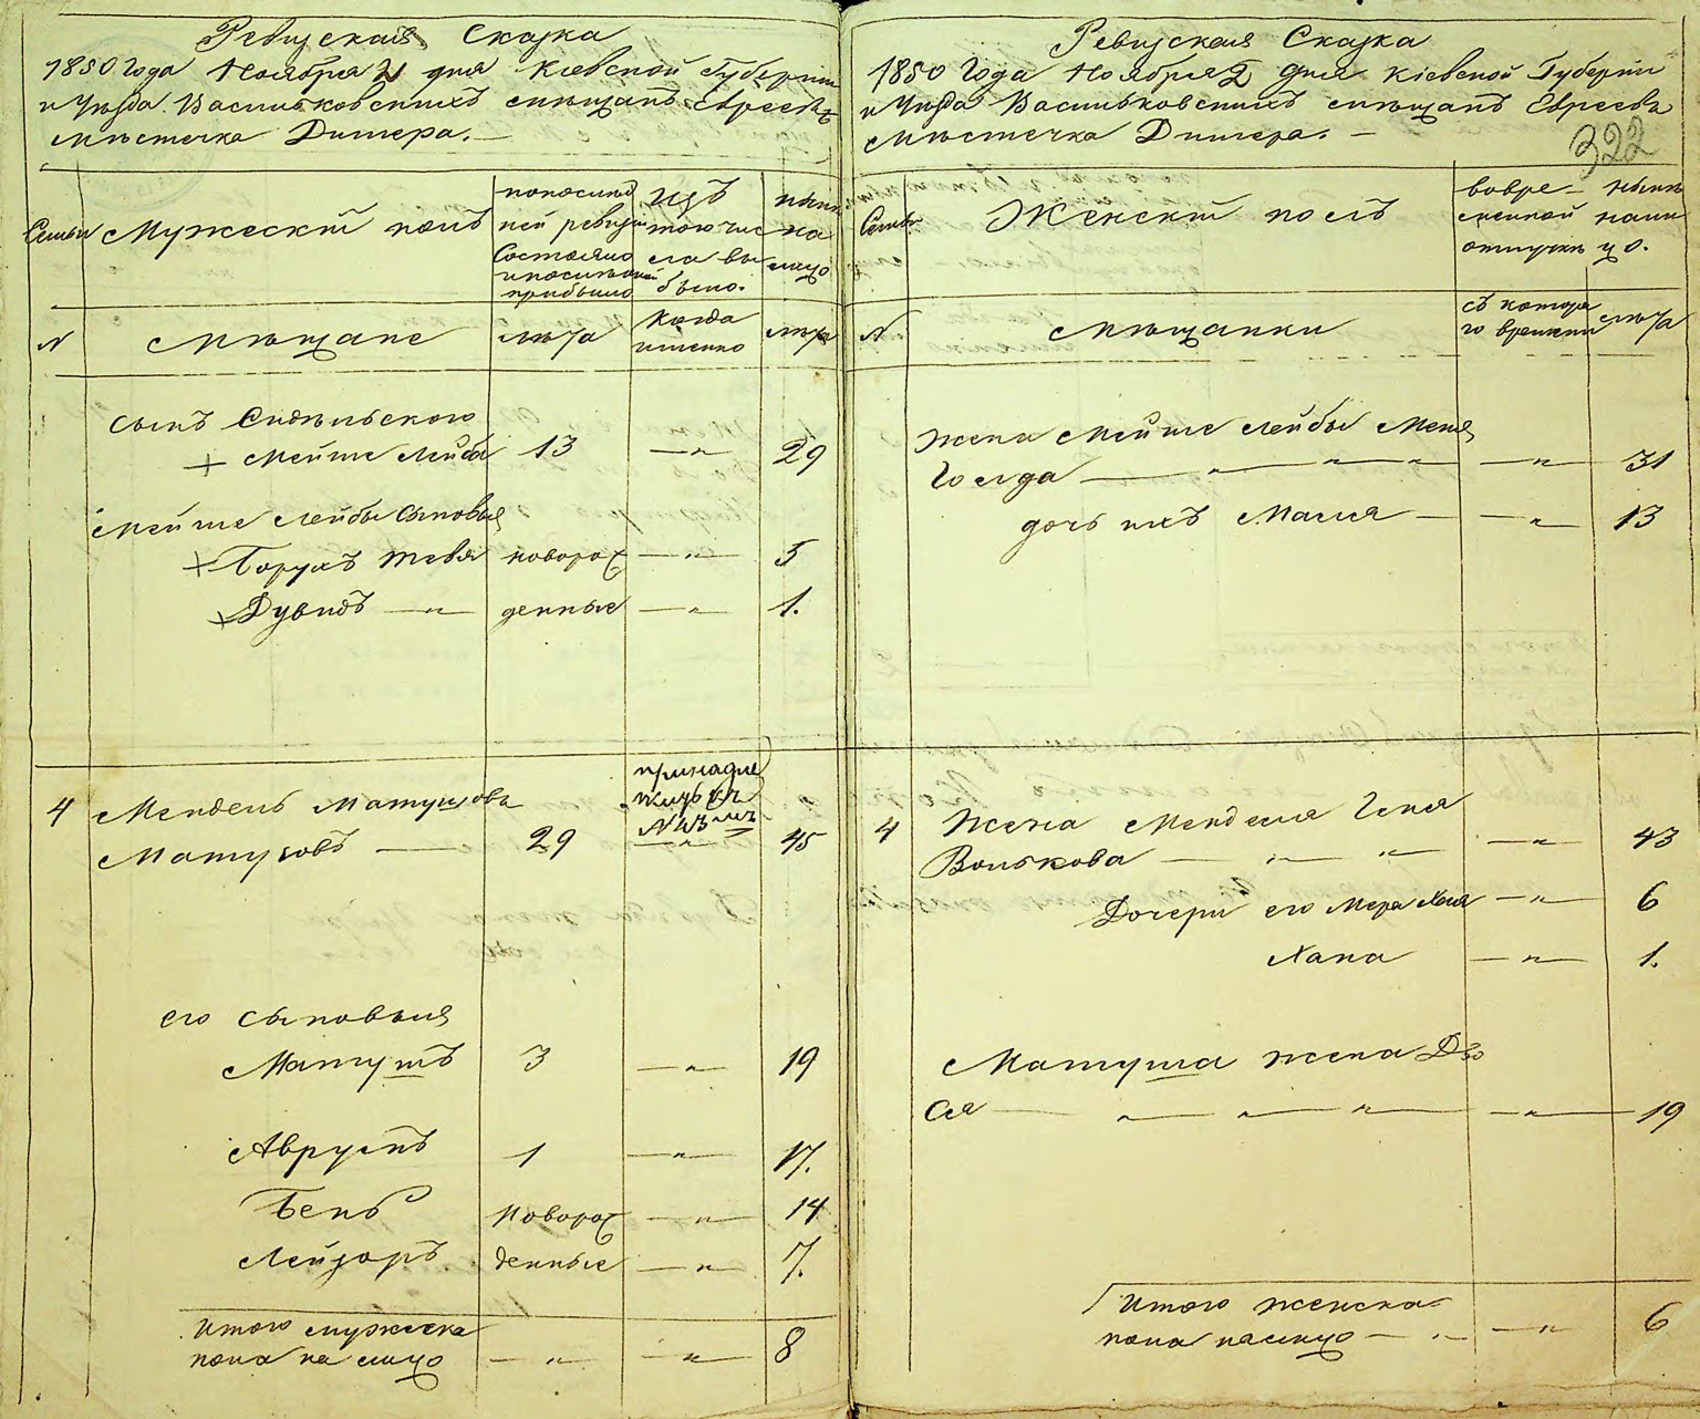 Ревизская Сказка
1850 Года Ноября 2 дня Кіевской Губерніи
и Уѣзда Васильковскихъ мѣщанъ Евреевъ
мѣстечка Димера.
Семьи
Мужескій полъ
по послед
ней ревизіи
состояло
и после оной
прибыло
изъ
того чис
ла вы
было.
нынѣ
на
лицо
№
мѣщане
лѣта
Когда
именно
лѣта
сынъ
+ Мейше Лейба 13 — " — 29
Мейше Лейбы сыновья
+ Борухъ Тевя новорож — " — 5
+ Дувидъ — " — денные — " — 1.
4 Мендель Матушова
Матусовъ — 29 — " — 45
его сыновья
Матушъ 3 — " — 19
Аврумъ 1 — " — 17.
Бень новорож — " — 14
Лейзоръ денные — " — 7.
Итого мужеска
пола на лицо — " — — " — 8
Ревизская Сказка
1850 Года Ноября 2 дня Кіевской Губерніи
и Уѣзда Васильковскихъ мѣщанъ Евреевъ
мѣстечка Димера. —
322
Семьи
Женскій полъ
во вре-
менной
отлучкѣ
нынѣ
нали
цо.
№
мѣщанки
съ котора
го времени
лѣта
Жена Мейше Лейбы Меня
Голда — " — " — " — — " — 31
дочь ихъ Маля — — " — 13
4 Жена Менделя Геня
Волькова — " — " — — " — 43
Дочери его Мера Хая — " — 6
Хана — " — 1.
Матуша жена Дво
ся — " — " — " — — " — 19
Итого женска
пола налицо — " — — " — 6